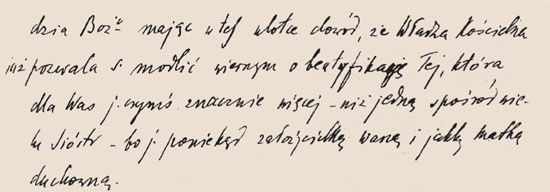 dzia Boż. mając w tej ulotce dowód, że Władza Kościelna
już pozwala s. modlić wiernym o beatyfikację Tej, która
dla Was j. czymś znacznie więcej - niż jedną spośród wie-
lu Sióstr - bo j. poniekąd założycielką waszą i jakby matką
duchowną.